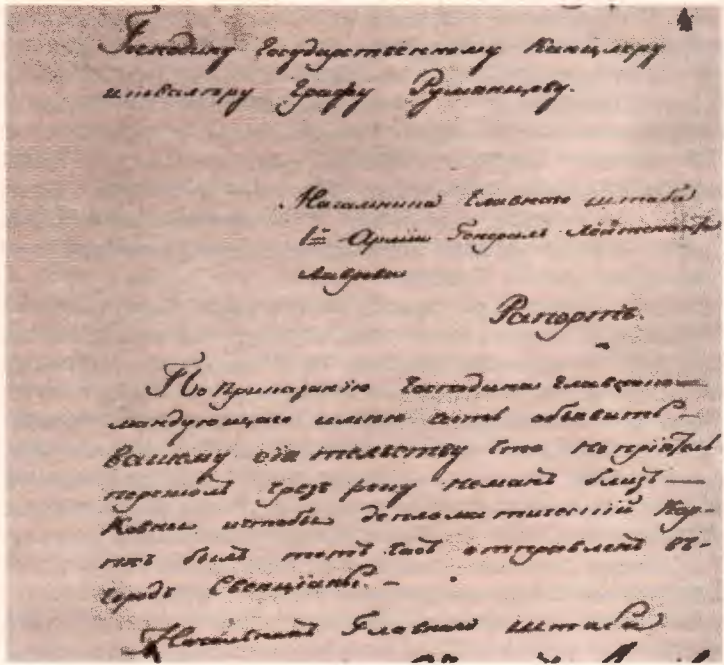 Господину Государственному Канцлеру
и кавалеру Графу Румянцеву.
Начальника Главнаго штаба
1й Арміи Генералъ Лейтенанта
Лаврова
Рапортъ.
По приказанію Господина Главноко-
мандующаго имею честь объявить
вашему сіятельству что непріятель
перешолъ чрезъ реку Неманъ близь
Ковны и чтобы депломатическій кор-
пусъ былъ тотъ часъ отправленъ въ
городъ Свенцяны. —
Начальникъ Главнаго штаба